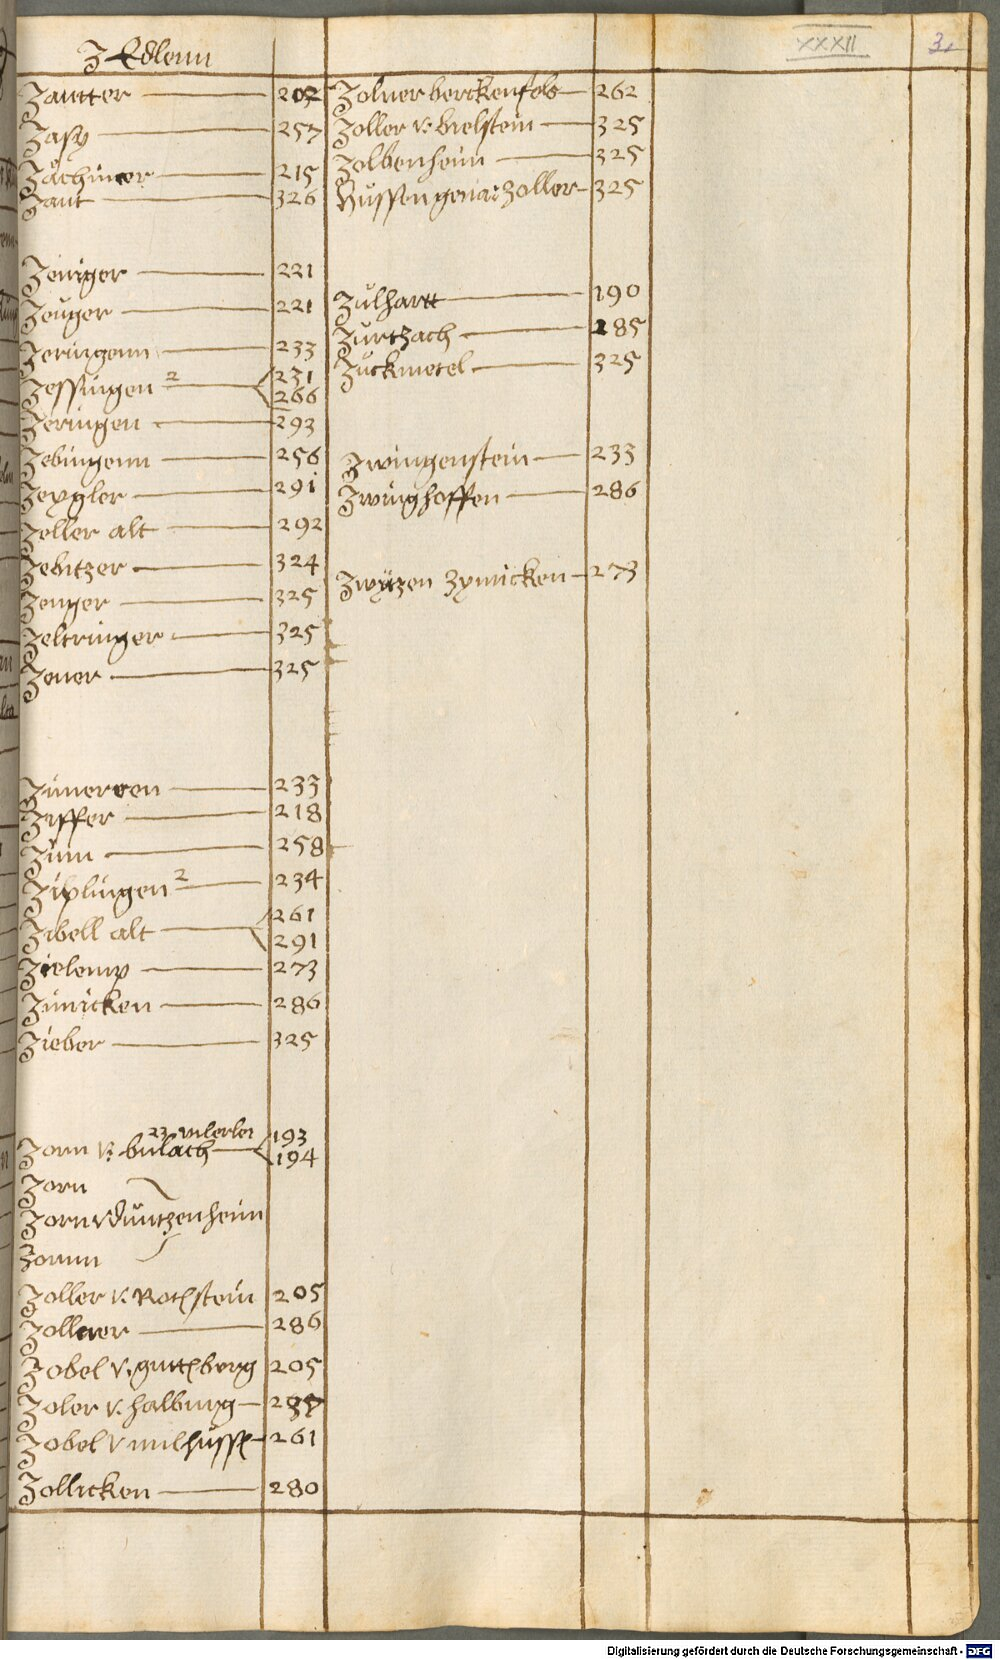 Z Edlenn
XXXII
Zantter 202
Zasy 257
Zachincer 215
Zant 326
Zeniger 221
Zeuger 221
Zeringenn 233
Zessingen 2 231
266
Zeringen 293
Zebingenn 256
Zeygler 291
Zeller alt 292
Zebitzer 324
Zenger 325
Zeltringer 325
Zener 325
Zimerren 233
Ziffer 218
Zinn 258
Ziplingen 2 234
Zibell alt 261
291
Zielemp 273
Zimicken 286
Zieber 325
23
193
Zorn v: bulach 194
Zorn
Zorn v Duntzenheim
Zornn
Zoller v. Rotstein 205
Zollner 286
Zobel v. guttberg 205
Zoler v. halburg
Zobel v milhussen 261
Zollicken 280
Zolner berckenfels 262
Zoller v: bielstein 325
Zolbenheim 325
Hussen genat Zoller 325
Zulhartt 190
Zurtzach 285
Zuckmetel 325
Zwingenstein 233
Zwinghoffen 286
Zwytzen Zymicken 273
Digitalisierung gefördert durch die Deutsche Forschungsgemeinschaft - DFG